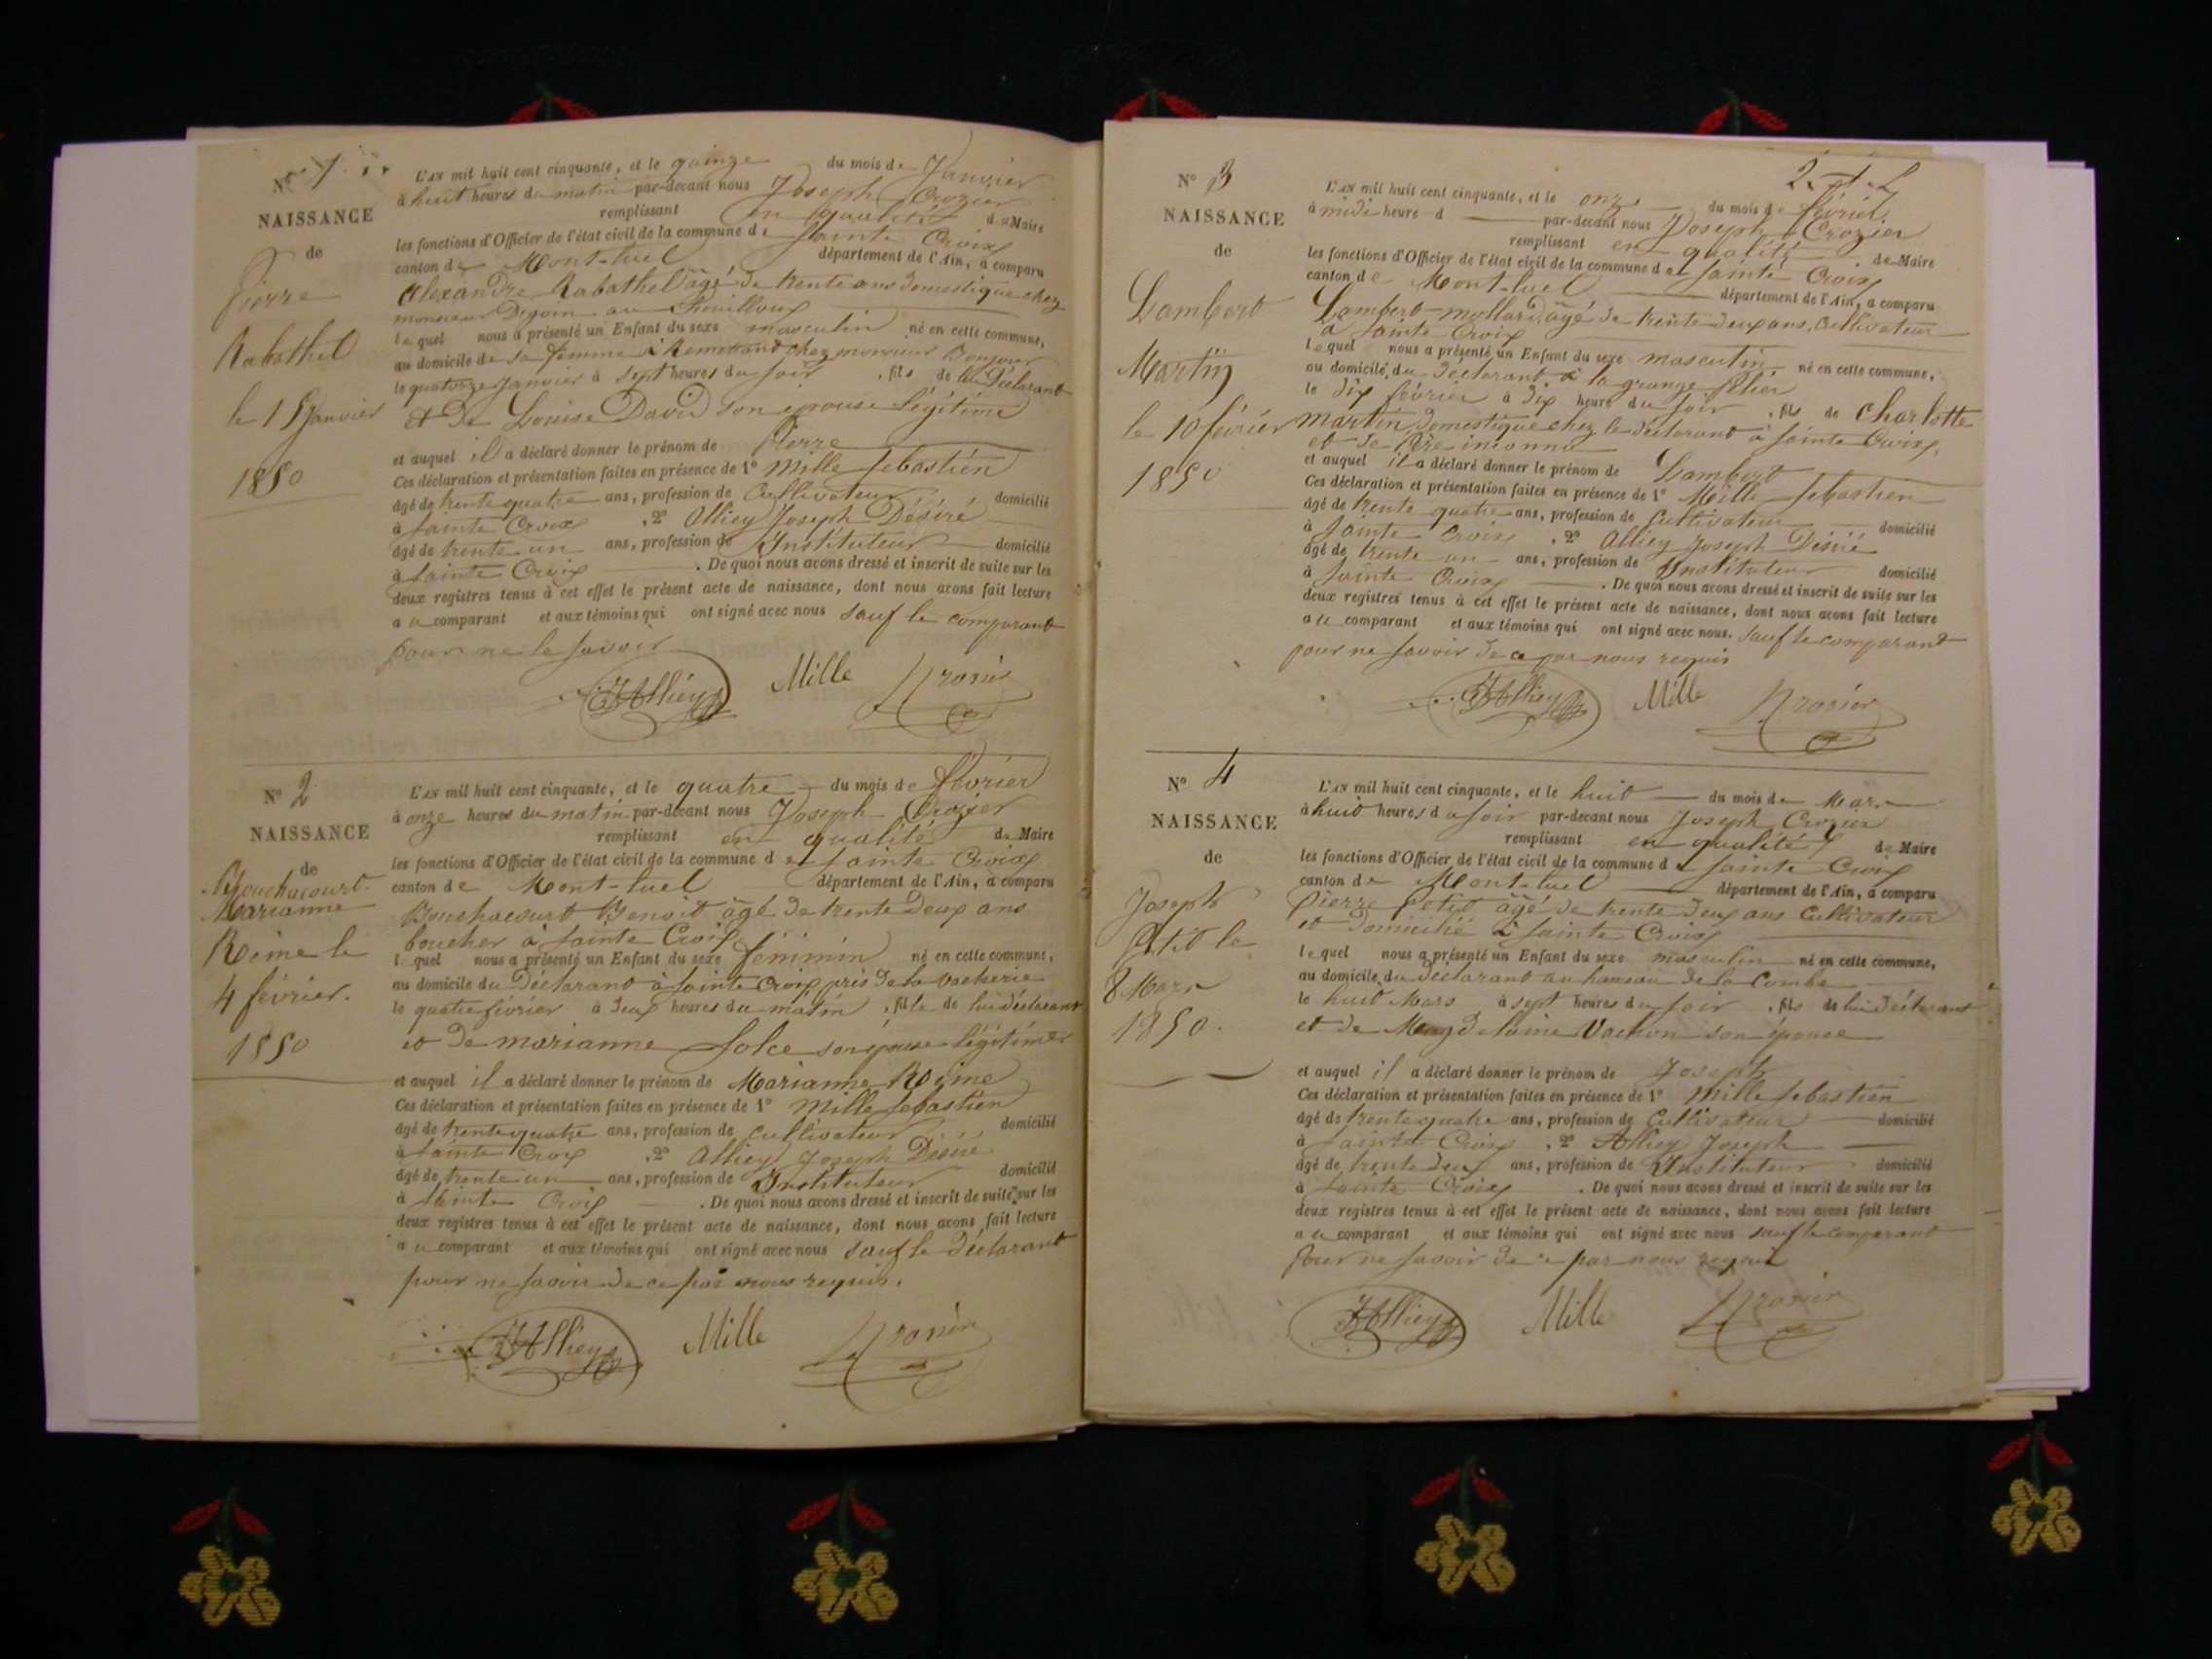 N° 1.
NAISSANCE
de
Pierre
Rabathel
le 15 Janvier
1850
L'AN mil huit cent cinquante, et le quinze du mois de Janvier
à huit heures du matin par-devant nous Joseph Crozier
remplissant en qualité de Maire
les fonctions d'Officier de l'état civil de la commune de Sainte Croix
canton de Mont-luel département de l'Ain, a comparu
Alexandre Rabathel âgé de trente ans domestique chez
monsieur Digoin au
lequel nous a présenté un Enfant du sexe masculin né en cette commune,
au domicile de sa femme à chez monsieur Bonjour
le quatorze Janvier à sept heures du soir, fils de lui Déclarant
et de Louise David son épouse légitime
et auquel il a déclaré donner le prénom de Pierre
Ces déclaration et présentation faites en présence de 1° Mille Sebastien
âgé de trente quatre ans, profession de Cultivateur domicilié
à Sainte Croix, 2° Alliey Joseph Désiré
âgé de trente un ans, profession de Instituteur domicilié
à Sainte Croix. De quoi nous avons dressé et inscrit de suite sur les
deux registres tenus à cet effet le présent acte de naissance, dont nous avons fait lecture
au comparant et aux témoins qui ont signé avec nous sauf le comparant
pour ne le savoir
JAlliey Mille Crozier
N° 2
NAISSANCE
de
Bouchacourt
Marianne
Reine le
4 février.
1850
L'AN mil huit cent cinquante, et le quatre du mois de février
à onze heures du matin par-devant nous Joseph Crozier
remplissant en qualité de Maire
les fonctions d'Officier de l'état civil de la commune de Sainte Croix
canton de Mont-luel département de l'Ain, a comparu
Bouchacourt Benoit âgé de trente deux ans
boucher à Sainte Croix
lequel nous a présenté un Enfant du sexe féminin né en cette commune,
au domicile du Déclarant à Sainte Croix près de la vacherie
le quatre février à deux heures du matin, fille de lui déclarant
et de marianne Solce son épouse légitime
et auquel il a déclaré donner le prénom de Marianne Reine
Ces déclaration et présentation faites en présence de 1° Mille Sebastien
âgé de trente quatre ans, profession de Cultivateur domicilié
à Sainte Croix, 2° Alliey Joseph Désiré
âgé de trente un ans, profession de Instituteur domicilié
à Sainte Croix. De quoi nous avons dressé et inscrit de suite sur les
deux registres tenus à cet effet le présent acte de naissance, dont nous avons fait lecture
au comparant et aux témoins qui ont signé avec nous sauf le déclarant
pour ne savoir de ce par nous requis.
JAlliey Mille Crozier
N° 3
NAISSANCE
de
Lambert
Martin
le 10 février
1850
L'AN mil huit cent cinquante, et le onze du mois de février.
à midi heure d par-devant nous Joseph Crozier
remplissant en qualité de Maire
les fonctions d'Officier de l'état civil de la commune de Sainte Croix
canton de Mont-luel département de l'Ain, a comparu
Lambert mollard, âgé de trente deux ans, cultivateur
à Sainte Croix
lequel nous a présenté un Enfant du sexe masculin né en cette commune,
au domicile du déclarant à la grange
le dix février à dix heure du soir, fils de Charlotte
martin domestique chez le déclarant à Sainte Croix,
et de père inconnu
et auquel il a déclaré donner le prénom de Lambert
Ces déclaration et présentation faites en présence de 1° Mille Sebastien
âgé de trente quatre ans, profession de Cultivateur domicilié
à Sainte Croix, 2° Alliey Joseph Désiré
âgé de trente un ans, profession de Instituteur domicilié
à Sainte Croix. De quoi nous avons dressé et inscrit de suite sur les
deux registres tenus à cet effet le présent acte de naissance, dont nous avons fait lecture
au comparant et aux témoins qui ont signé avec nous. sauf le comparant
pour ne savoir de ce par nous requis
JAlliey Mille Crozier
N° 4
NAISSANCE
de
Joseph
Petit le
8 Mars
1850.
L'AN mil huit cent cinquante, et le huit du mois de Mars
à huit heures du soir par-devant nous Joseph Crozier
remplissant en qualité de Maire
les fonctions d'Officier de l'état civil de la commune de Sainte Croix
canton de Mont-luel département de l'Ain, a comparu
Pierre Petit âgé de trente deux ans Cultivateur
et Domicilié à Sainte Croix
lequel nous a présenté un Enfant du sexe masculin né en cette commune,
au domicile du déclarant au hameau de la Combe
le huit Mars à sept heures du soir, fils de lui déclarant
et de Magdelaine Vachon son épouse
et auquel il a déclaré donner le prénom de Joseph
Ces déclaration et présentation faites en présence de 1° Mille Sebastien
âgé de trente quatre ans, profession de Cultivateur domicilié
à Sainte Croix, 2° Alliey Joseph
âgé de trente deux ans, profession de Instituteur domicilié
à Sainte Croix. De quoi nous avons dressé et inscrit de suite sur les
deux registres tenus à cet effet le présent acte de naissance, dont nous avons fait lecture
au comparant et aux témoins qui ont signé avec nous sauf le comparant
pour ne savoir de ce par nous requis
JAlliey Mille Crozier